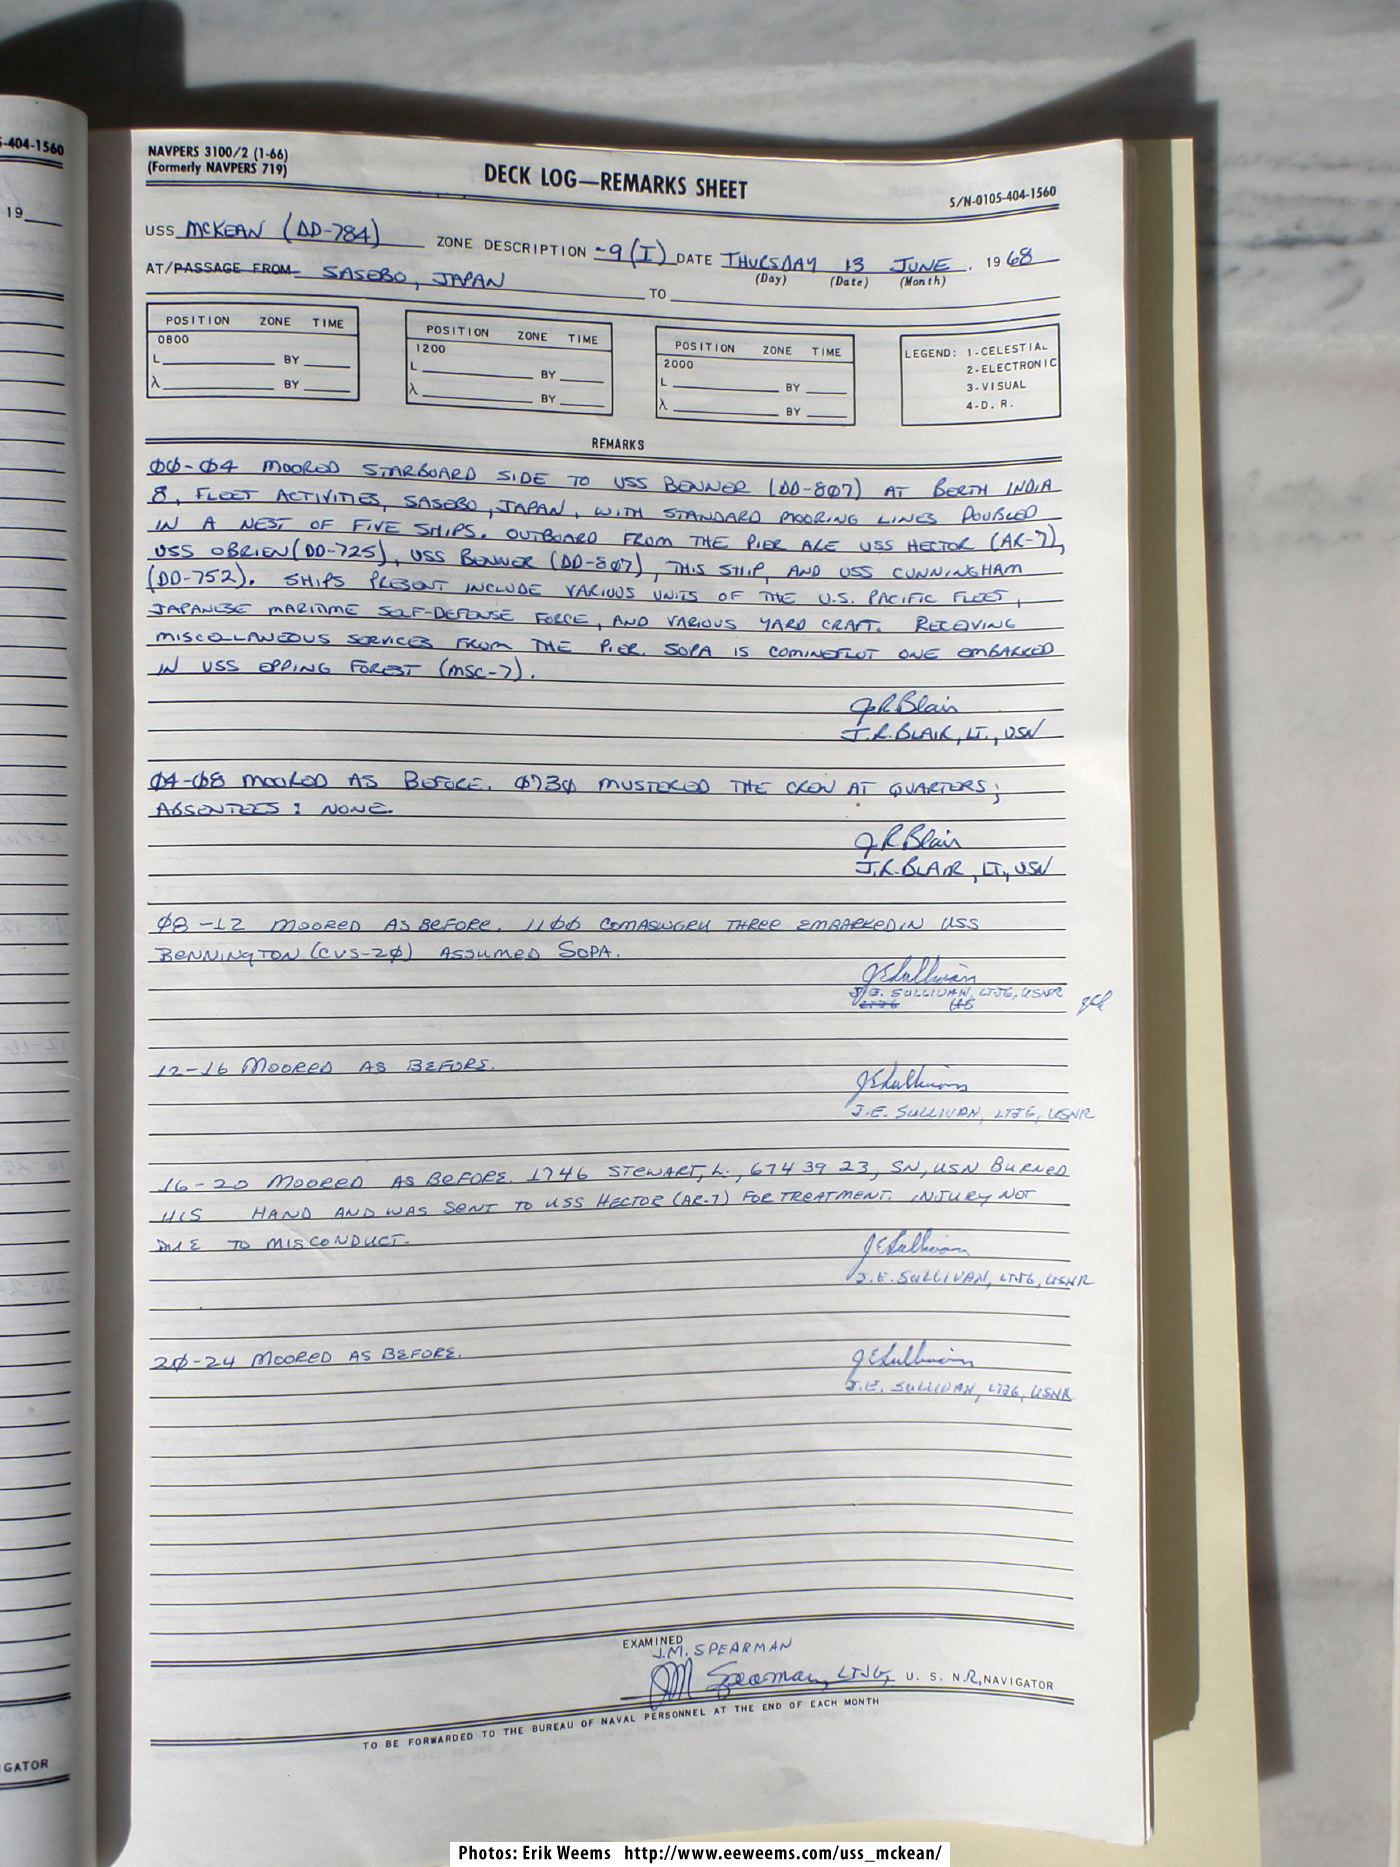 -404-1560
19
IGATOR
NAVPERS 3100/2 (1-66)
(Formerly NAVPERS 719)
DECK LOG—REMARKS SHEET
S/N-0105-404-1560
USS MCKEAN (DD-784) ZONE DESCRIPTION -9 (I) DATE THURSDAY 13 JUNE, 1968
(Day) (Date) (Month)
AT/PASSAGE FROM SASEBO, JAPAN TO
POSITION ZONE TIME
0800
L BY
λ BY
POSITION ZONE TIME
1200
L BY
λ BY
POSITION ZONE TIME
2000
L BY
λ BY
LEGEND: 1-CELESTIAL
2-ELECTRONIC
3-VISUAL
4-D. R.
REMARKS
00-04 MOORED STARBOARD SIDE TO USS BENNER (DD-807) AT BERTH INDIA
8, FLEET ACTIVITIES, SASEBO, JAPAN, WITH STANDARD MOORING LINES DOUBLED
IN A NEST OF FIVE SHIPS. OUTBOARD FROM THE PIER ARE USS HECTOR (AR-7),
USS OBRIEN (DD-725), USS BENNER (DD-807), THIS SHIP, AND USS CUNNINGHAM
(DD-752). SHIPS PRESENT INCLUDE VARIOUS UNITS OF THE U.S. PACIFIC FLEET,
JAPANESE MARITIME SELF-DEFENSE FORCE, AND VARIOUS YARD CRAFT. RECEIVING
MISCELLANEOUS SERVICES FROM THE PIER. SOPA IS COMINEFLOT ONE EMBARKED
IN USS EPPING FOREST (MSC-7).
JRBlair
J.R. BLAIR, LT., USN
04-08 MOORED AS BEFORE. 0730 MUSTERED THE CREW AT QUARTERS;
ABSENTEES: NONE.
JRBlair
J.R. BLAIR, LT, USN
08-12 MOORED AS BEFORE. 1100 COMASWGRU THREE EMBARKED IN USS
BENNINGTON (CVS-20) ASSUMED SOPA.
JESullivan
J.E. SULLIVAN, LTJG, USNR
12-16 MOORED AS BEFORE.
JESullivan
J.E. SULLIVAN, LTJG, USNR
16-20 MOORED AS BEFORE. 1746 STEWART, L., 674 39 23, SN, USN BURNED
HIS HAND AND WAS SENT TO USS HECTOR (AR-7) FOR TREATMENT. INJURY NOT
DUE TO MISCONDUCT.
JESullivan
J.E. SULLIVAN, LTJG, USNR
20-24 MOORED AS BEFORE.
JESullivan
J.E. SULLIVAN, LTJG, USNR
EXAMINED
J.M. SPEARMAN
JM Spearman, LTJG, U. S. N.R, NAVIGATOR
TO BE FORWARDED TO THE BUREAU OF NAVAL PERSONNEL AT THE END OF EACH MONTH
Photos: Erik Weems http://www.eeweems.com/uss_mckean/